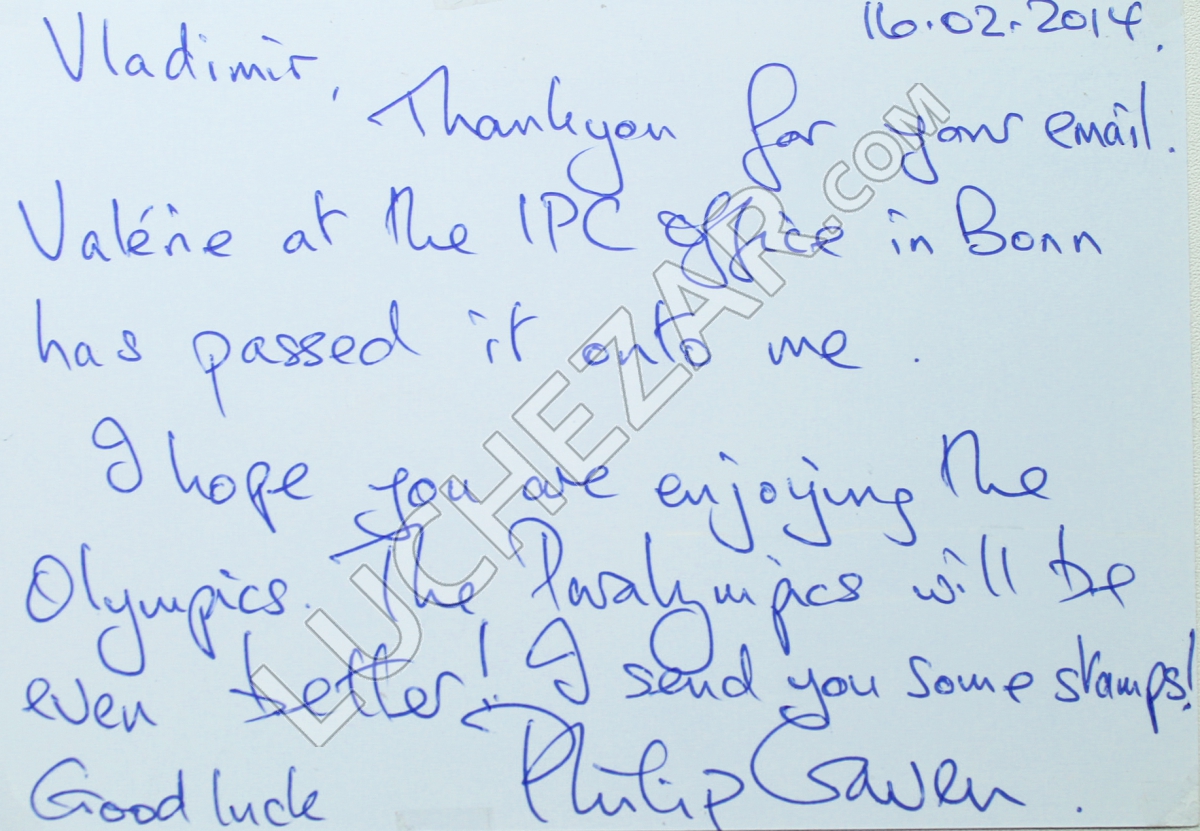 16.02.2014.
Vladimir,
Thankyou for your email.
Valérie at the IPC office in Bonn
has passed it onto me.
I hope you are enjoying the
Olympics. The Paralympics will be
even better! I send you some stamps!
Good luck Philip Craven.
LUCHEZAR.COM